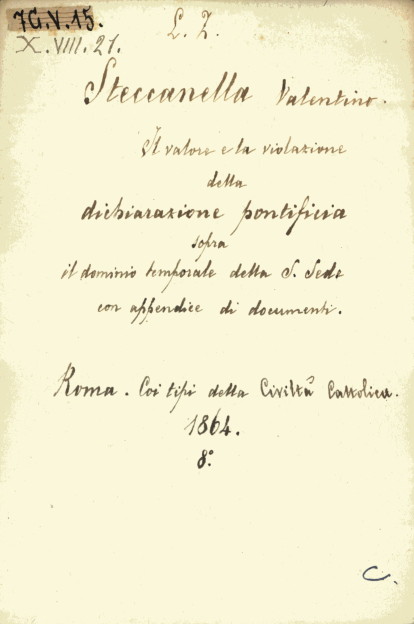 7G.V.15.
X.VIII.21.
L. Z.
Steccanella Valentino.
Il valore e la violazione
della
dichiarazione pontificia
sopra
il dominio temporale della S. Sede
con appendice di documenti.
Roma. Coi tipi della Civiltà Cattolica.
1864.
8°.
C.